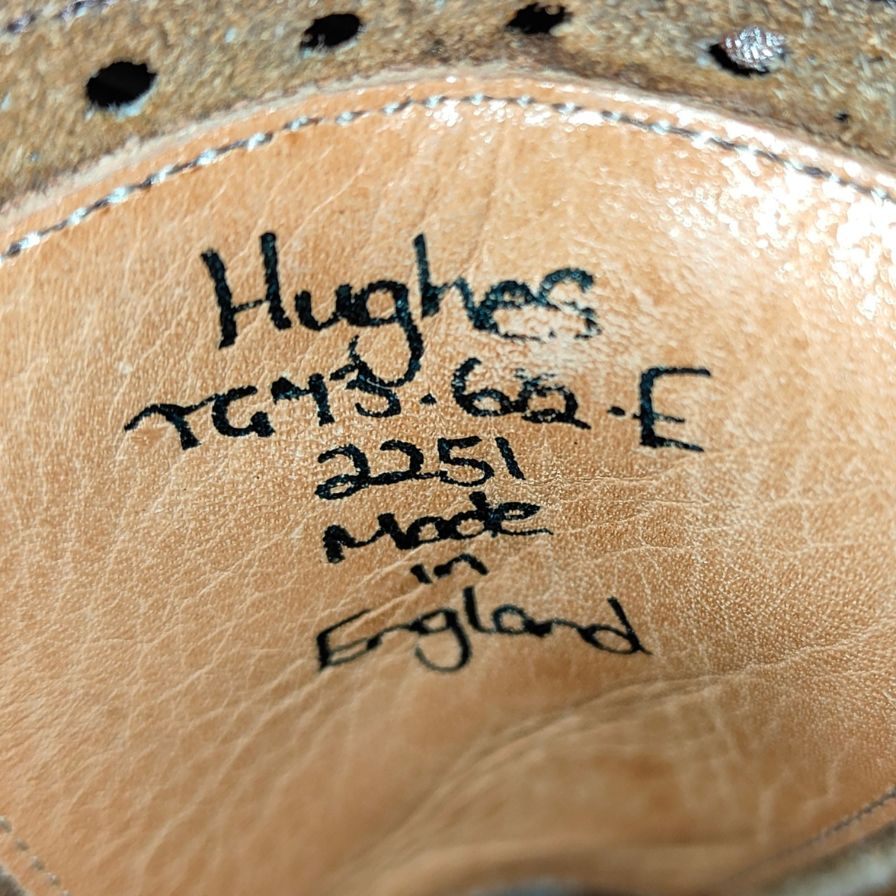 Hughes
TG73.62.E
2251
Made
in
England